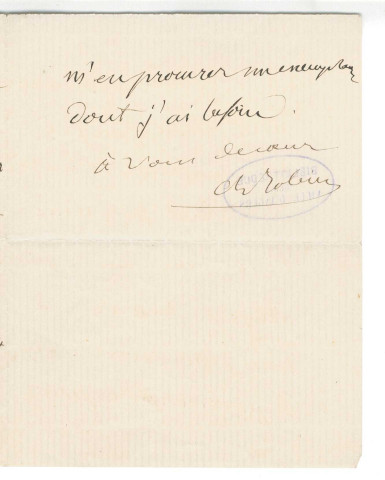 m'en procurer un exemplaire
dont j'ai besoin.
à vous de cœur
Ch Robin